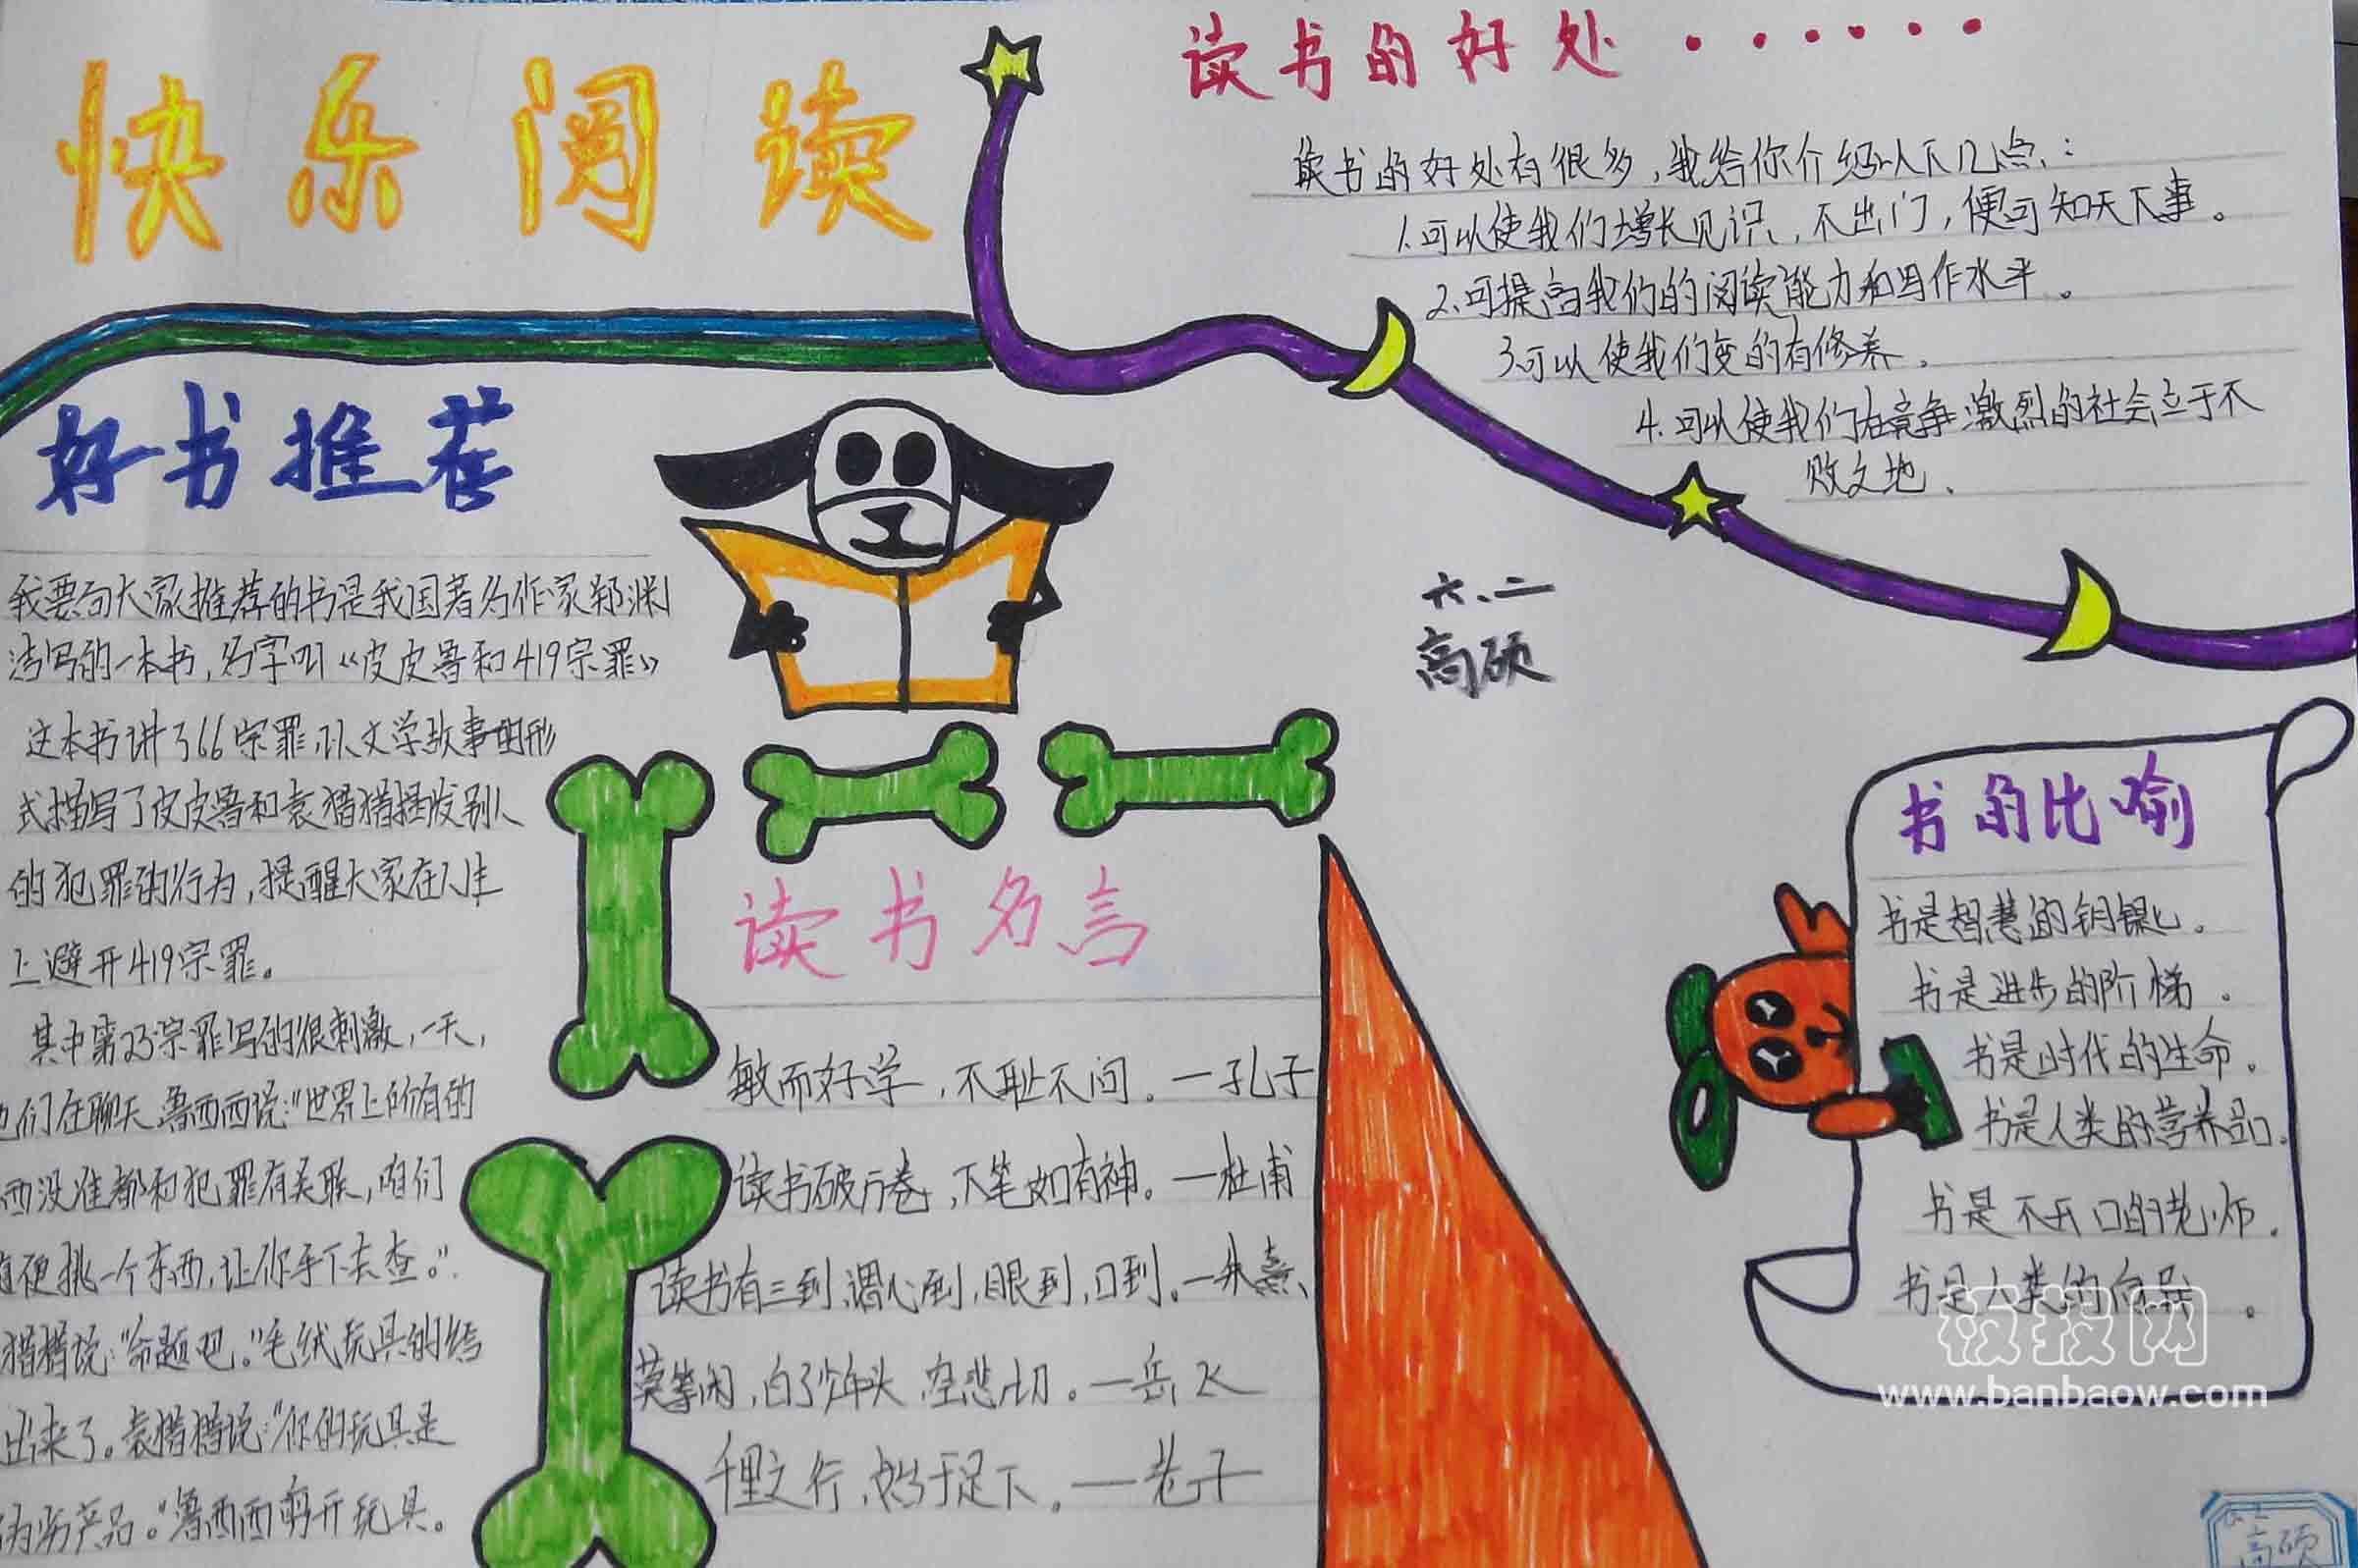 快乐阅读
读书的好处······
读书的好处有很多,我给你介绍以下几点:
1.可以使我们增长见识,不出门,便可知天下事。
2.可提高我们的阅读能力和写作水平。
3.可以使我们变的有修养.
4.可以使我们在竞争激烈的社会立于不
败之地、
好书推荐
我要向大家推荐的书是我国著名作家郑渊
洁写的一本书,名字叫《皮皮鲁和419宗罪》
这本书讲了66宗罪,以文学故事的形
式描写了皮皮鲁和袁猎猎揭发别人
的犯罪的行为,提醒大家在人生
上避开419宗罪。
其中第23宗罪写的很刺激,一天,
们在聊天鲁西西说:"世界上所有的
西没准都和犯罪有关联,咱们
硬挑一个东西,让你手下去查。"
猎猎说:"命题吧。"毛绒玩具的结
出来了。袁猎猎说:"你的玩具是
伪劣产品。"鲁西西剪开玩具。
六.二
高硕
读书名言
敏而好学,不耻下问。—孔子
读书破万卷,下笔如有神。—杜甫
读书有三到,谓心到,眼到,口到。—朱熹、
莫等闲,白了少年头,空悲切。—岳飞
千里之行,始于足下。—老子
书的比喻
书是智慧的钥匙。
书是进步的阶梯.
书是时代的生命.
书是人类的营养品.
书是不开口的老师.
书是人类的
板报网
www.banbaow.com
高硕